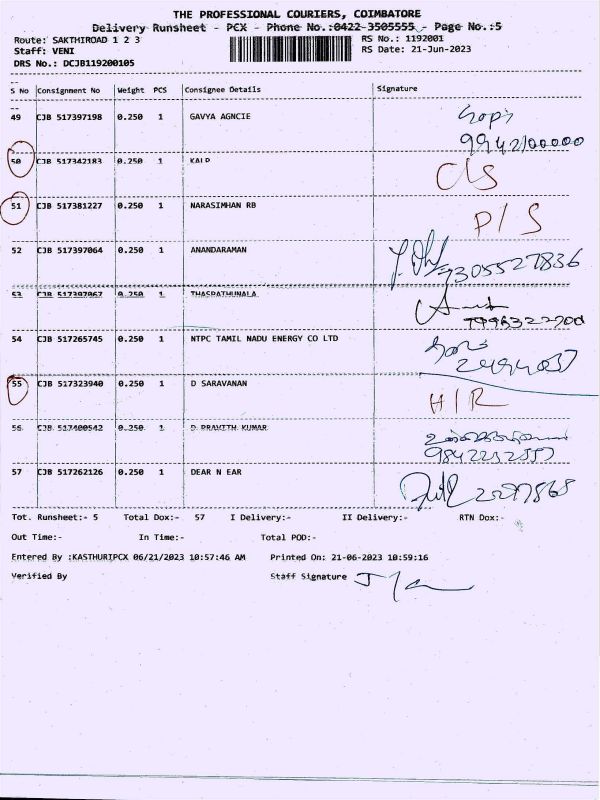 THE PROFESSIONAL COURIERS, COIMBATORE
Delivery Runsheet - PCX - Phone No.:0422-3505555 - Page No.:5
Route: SAKTHIROAD 1 2 3 RS No.: 1192001
Staff: VENI RS Date: 21-Jun-2023
DRS No.: DCJB119200105
S No Consignment No Weight PCS Consignee Details Signature
49 CJB 517397198 0.250 1 GAVYA AGNCIE Gopi
9942100000
50 CJB 517342183 0.250 1 KALP C/S
51 CJB 517381227 0.250 1 NARASIMHAN RB P/S
52 CJB 517397064 0.250 1 ANANDARAMAN 9305527836
53 CJB 517397067 0.250 1 THASPATHUNALA
54 CJB 517265745 0.250 1 NTPC TAMIL NADU ENERGY CO LTD
2494037
55 CJB 517323940 0.250 1 D SARAVANAN H/R
56 CJB 517400542 0.250 1 D PRAVITH KUMAR
9842232557
57 CJB 517262126 0.250 1 DEAR N EAR 2297868
Tot. Runsheet:- 5 Total Dox:- 57 I Delivery:- II Delivery:- RTN Dox:-
Out Time:- In Time:- Total POD:-
Entered By :KASTHURIPCX 06/21/2023 10:57:46 AM Printed On: 21-06-2023 10:59:16
Verified By Staff Signature